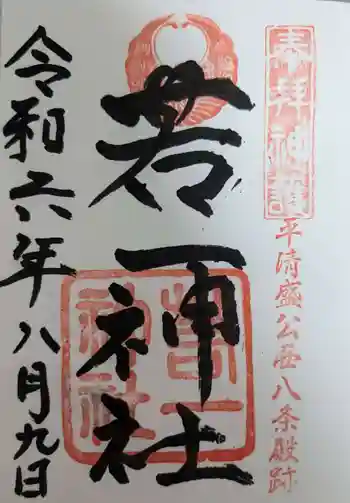 奉拝神詣
平清盛公西八条殿跡
若一神社
若一神社
令和六年八月九日